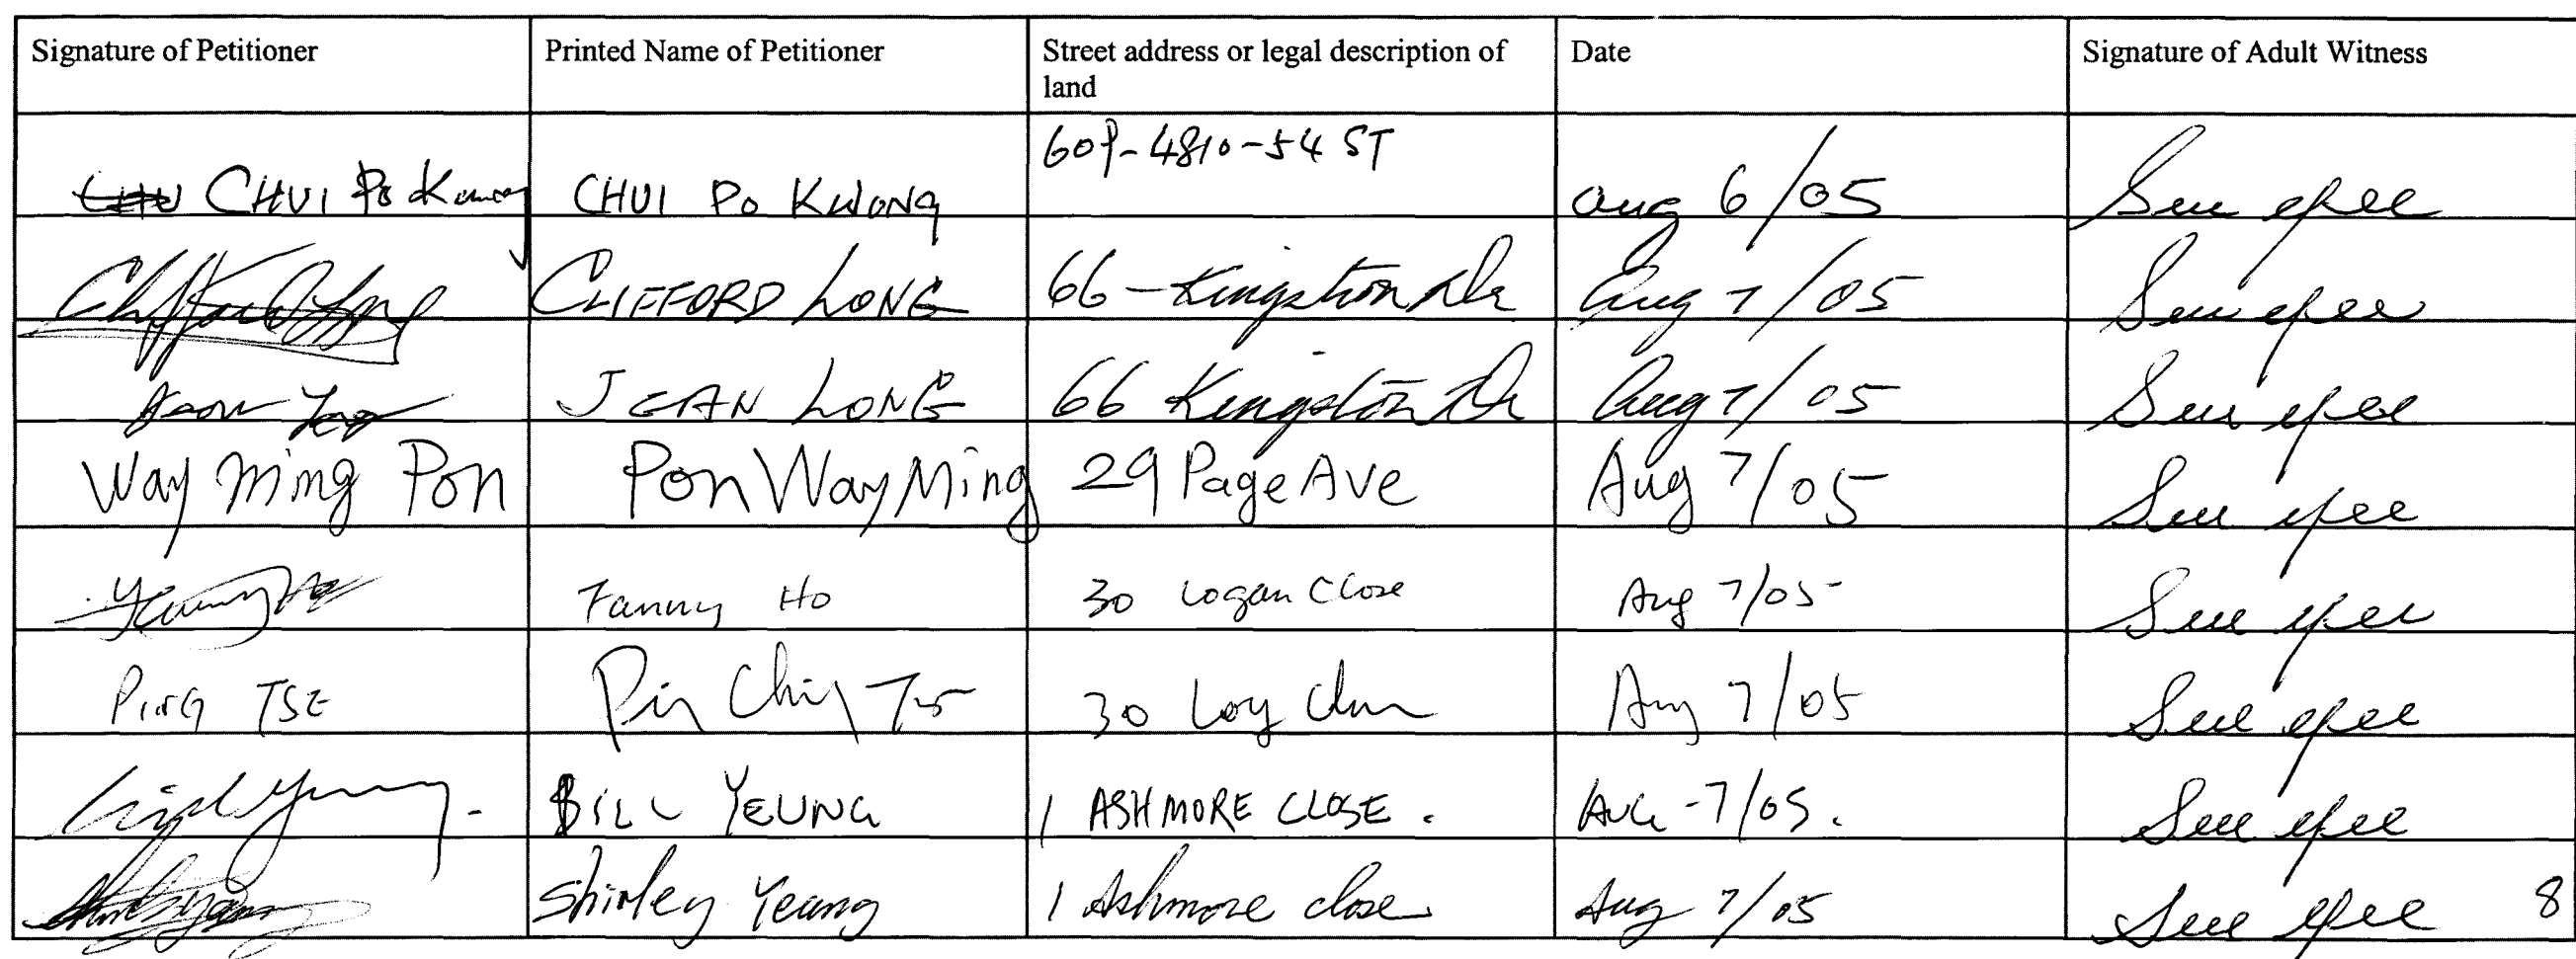 Signature of Petitioner Printed Name of Petitioner Street address or legal description of Date Signature of Adult Witness
land
CHUI Po Kwong CHUI Po KWONG 609-4810-54 ST Aug 6/05
Clifford Long CLIFFORD LONG 66 - Kingston Dr Aug 7/05
Jean Long JEAN LONG 66 Kingston Dr Aug 7/05
Way Ming Pon Pon Way Ming 29 Page Ave Aug 7/05
Fanny Ho 30 Logan Close Aug 7/05
Ping TSE 30 Aug 7/05
BILL YEUNG 1 ASHMORE CLOSE. AUG -7/05.
Shirley Yeung 1 Ashmore close Aug 7/05 8